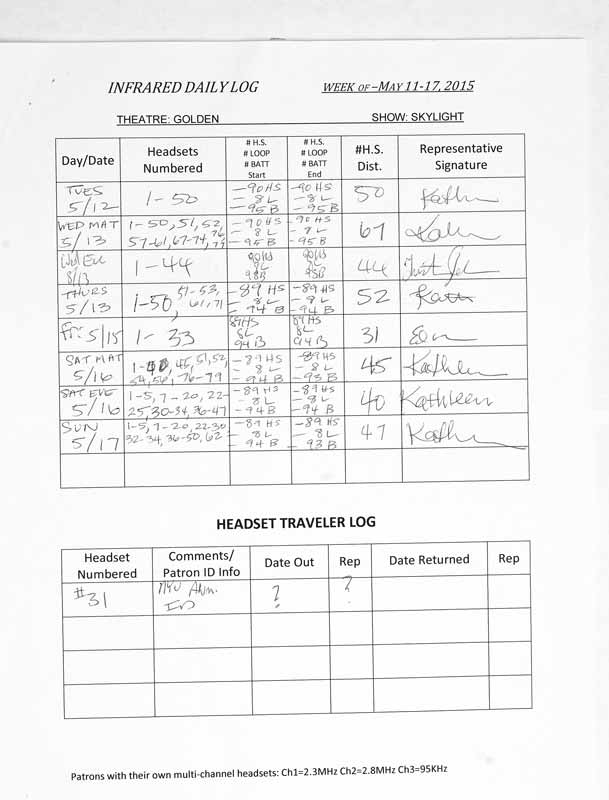 INFRARED DAILY LOG WEEK OF –MAY 11-17, 2015
THEATRE: GOLDEN SHOW: SKYLIGHT
Day/Date
Headsets
Numbered
# H.S.
# LOOP
# BATT
Start
# H.S.
# LOOP
# BATT
End
#H.S.
Dist.
Representative
Signature
TUES
5/12
1-50
-90 HS
- 8 L
- 95 B
-90 HS
- 8 L
- 95 B
50
WED MAT
5/13
1-50, 51, 52,
57-61, 67-74, 76
79
-90 HS
- 8 L
- 95 B
-90 HS
- 8 L
- 95 B
67
Wed Eve
5/13
1-44
90 HS
8L
95B
44
THURS
5/13
1-50, 51-53,
61, 71
-89 HS
- 8 L
- 94 B
-89 HS
- 8 L
- 94 B
52
Kath
Fri 5/15
1-33
89 HS
8L
94 B
89 HS
8L
94 B
31
SAT MAT
5/16
45, 51, 52,
54, 56, 76-79
-89 HS
- 8 L
- 94 B
-89 HS
- 8 L
- 93 B
45
Kathleen
SAT EVE
5/16
1-5, 7-20, 22-
25, 30-34, 36-47
-89 HS
- 8 L
- 94 B
-89 HS
- 8 L
- 94 B
40
Kathleen
SUN
5/17
1-5, 7-20, 22-30
32-34, 36-50, 62
-89 HS
- 8 L
- 94 B
-89 HS
- 8 L
- 93 B
47
HEADSET TRAVELER LOG
Headset
Numbered
Comments/
Patron ID Info
Date Out
Rep
Date Returned
Rep
#31
NYU Alum.
ID
?
?
Patrons with their own multi-channel headsets: Ch1=2.3MHz Ch2=2.8MHz Ch3=95KHz